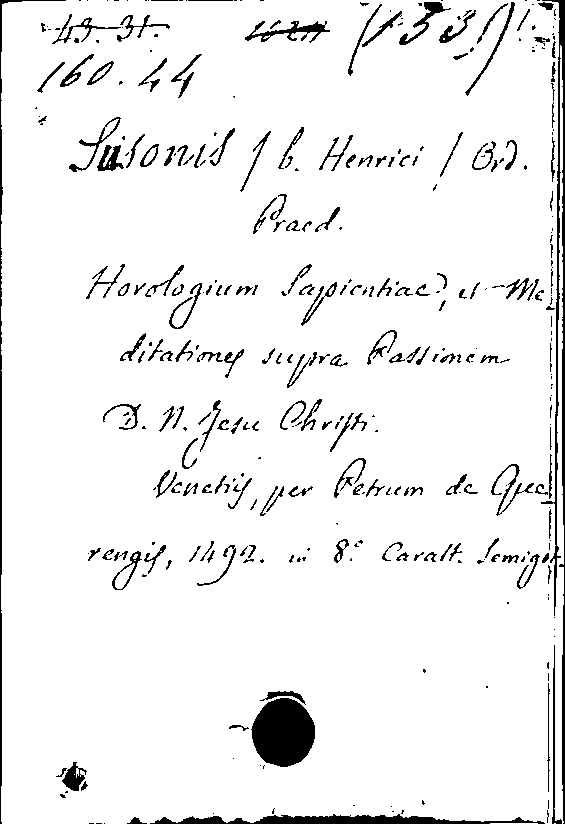 43. 31. (153)
160. 44
Susonis / b. Henrici / Ord.
Praed.
Horologium Sapientiae, et Me
ditationes supra Passionem
D. N. Jesu Christi.
Venetiis, per Petrum de Que
rengis, 1492. in 8.° Caratt. Semigot.